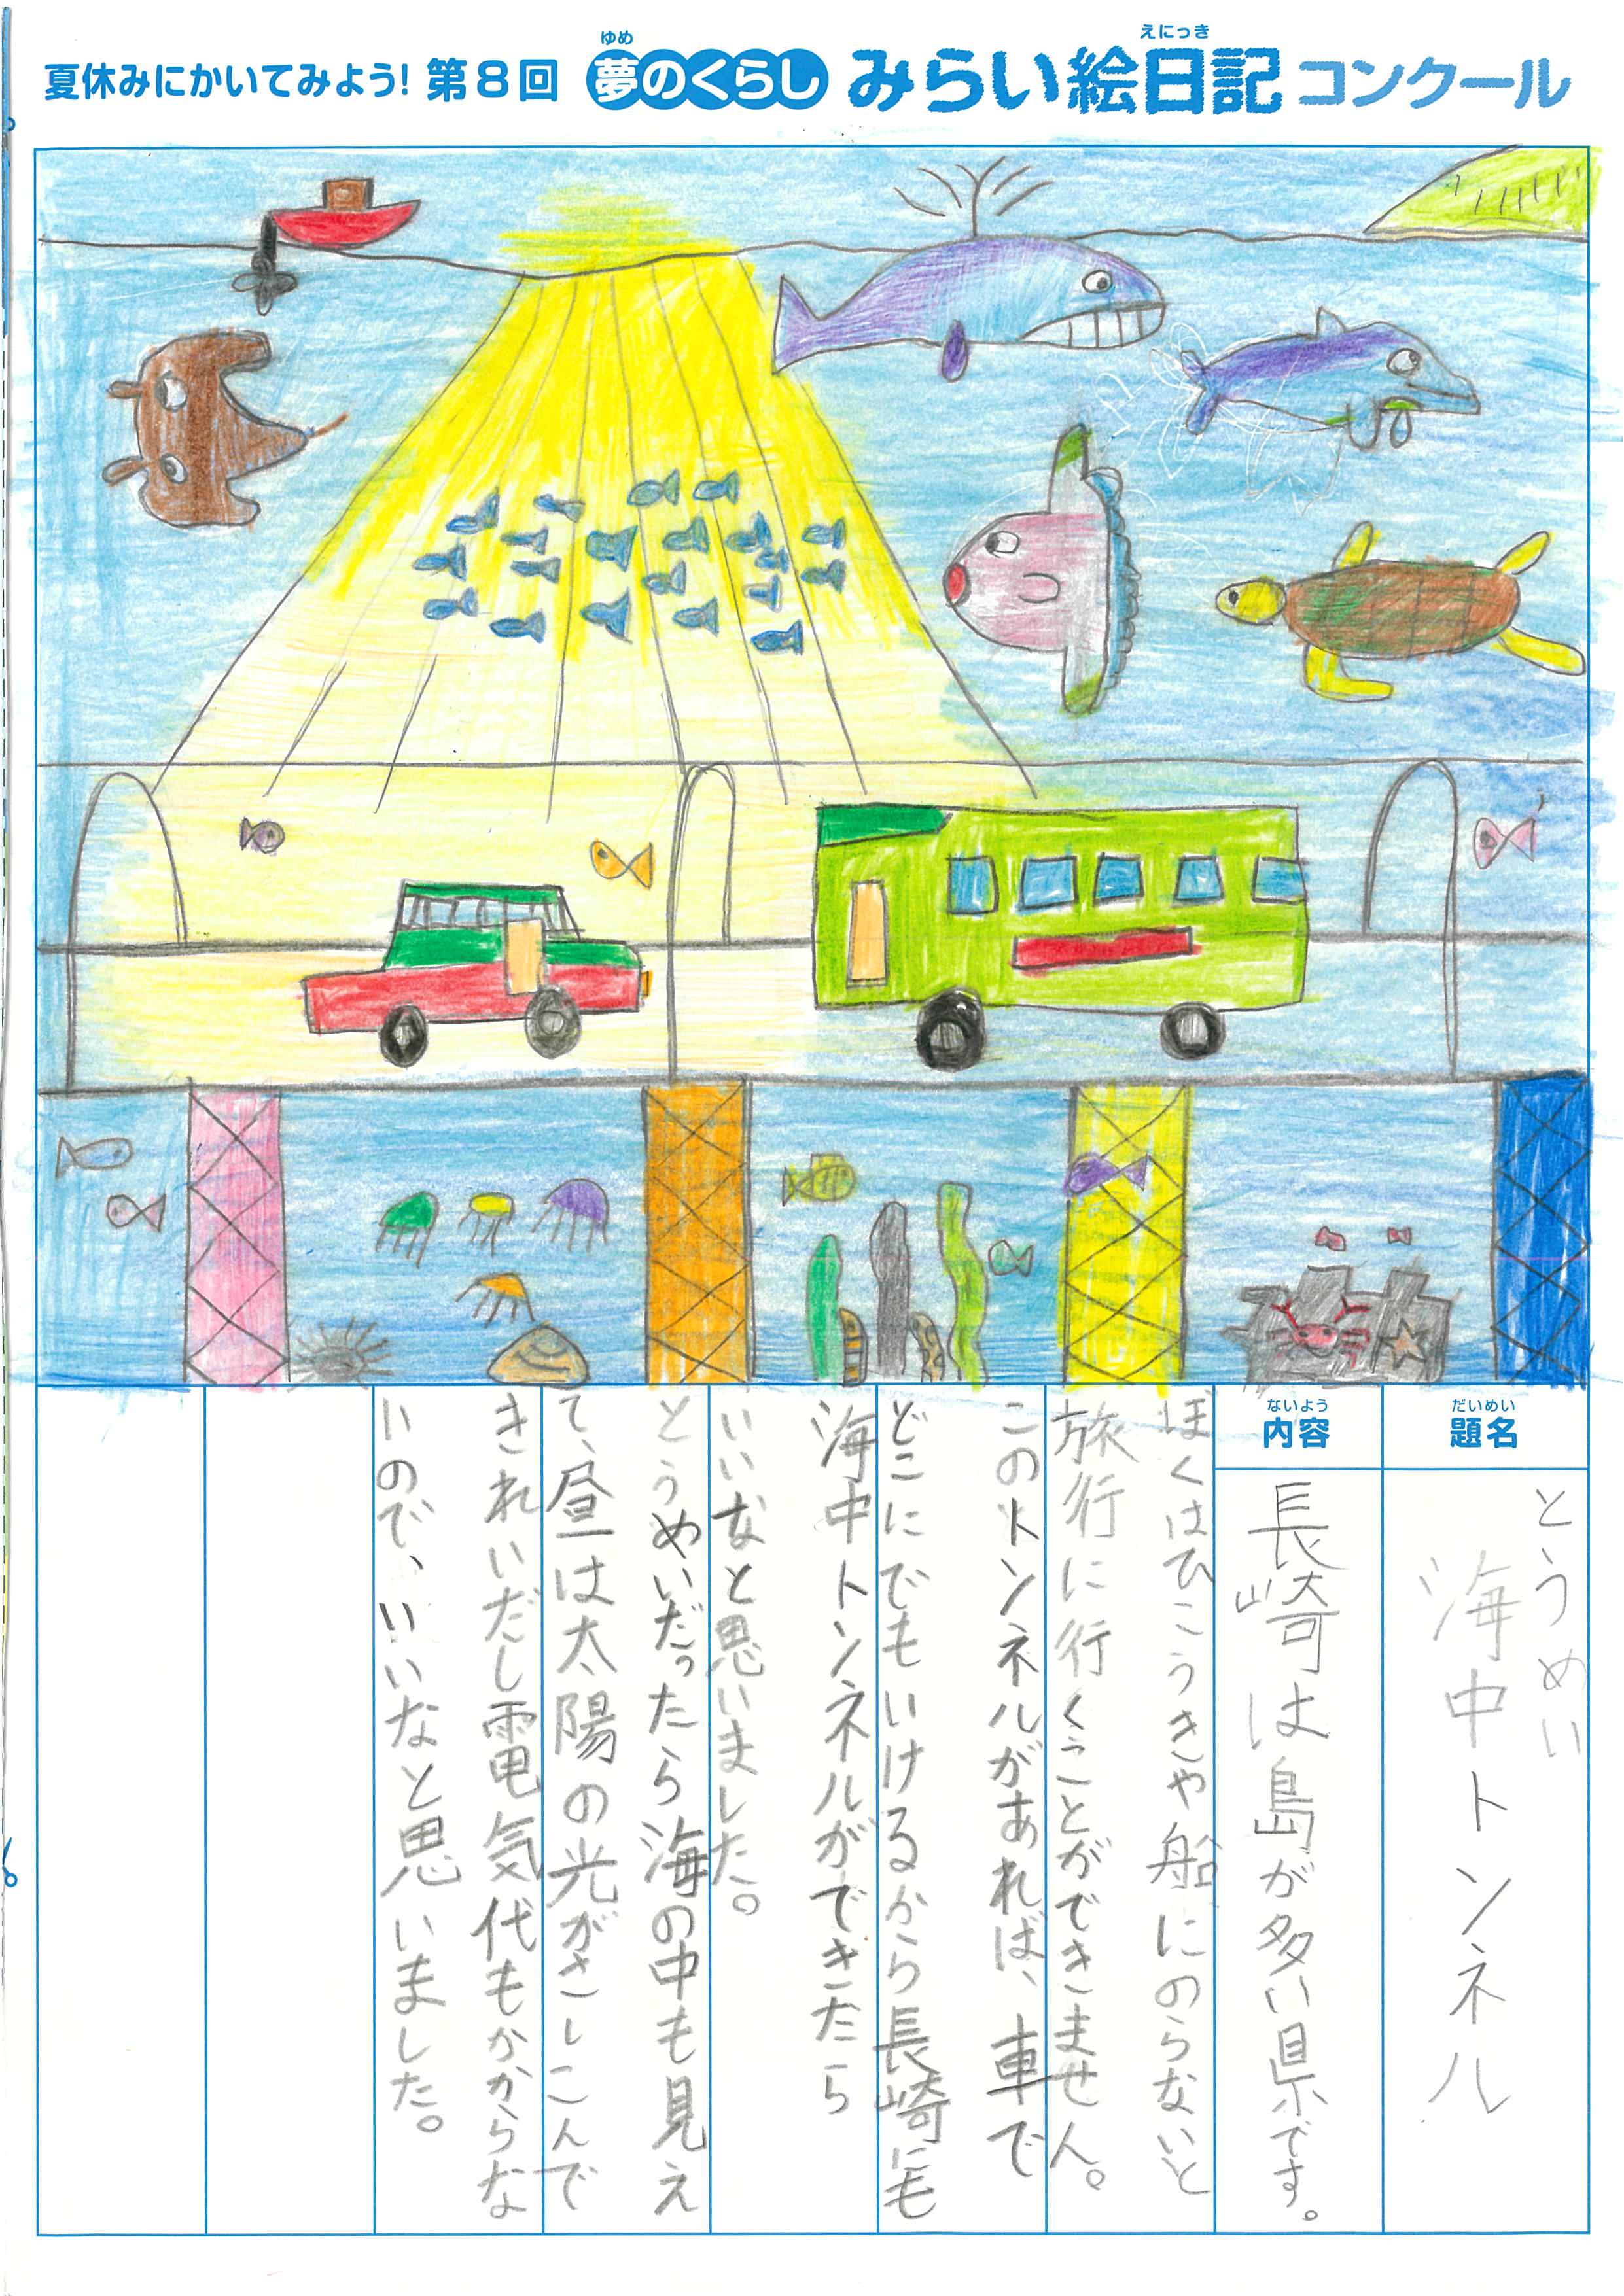 夏休みにかいてみよう! 第8回 夢のくらし みらい絵日記コンクール
ゆめ
えにっき
だいめい
題名
とうめい
海中トンネル
ないよう
内容
長崎は島が多い県です。
ぼくはひこうきや船にのらないと
旅行に行くことができません。
このトンネルがあれば、車で
どこにでもいけるから長崎にも
海中トンネルができたら
いいなと思いました。
とうめいだったら海の中も見え
て、昼は太陽の光がさしこんで
きれいだし電気代もかからな
いので、いいなと思いました。